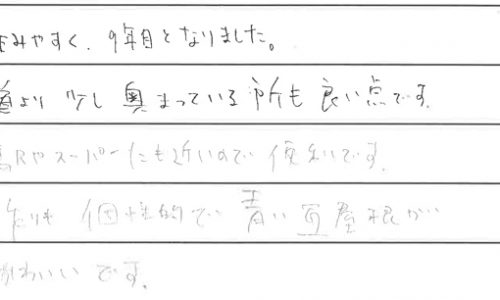 みやすく、9年目となりました。
道より少し奥まっている所も良い点です。
駅やスーパーにも近いので便利です。
も個性的で青い瓦屋根が
かわいいです。